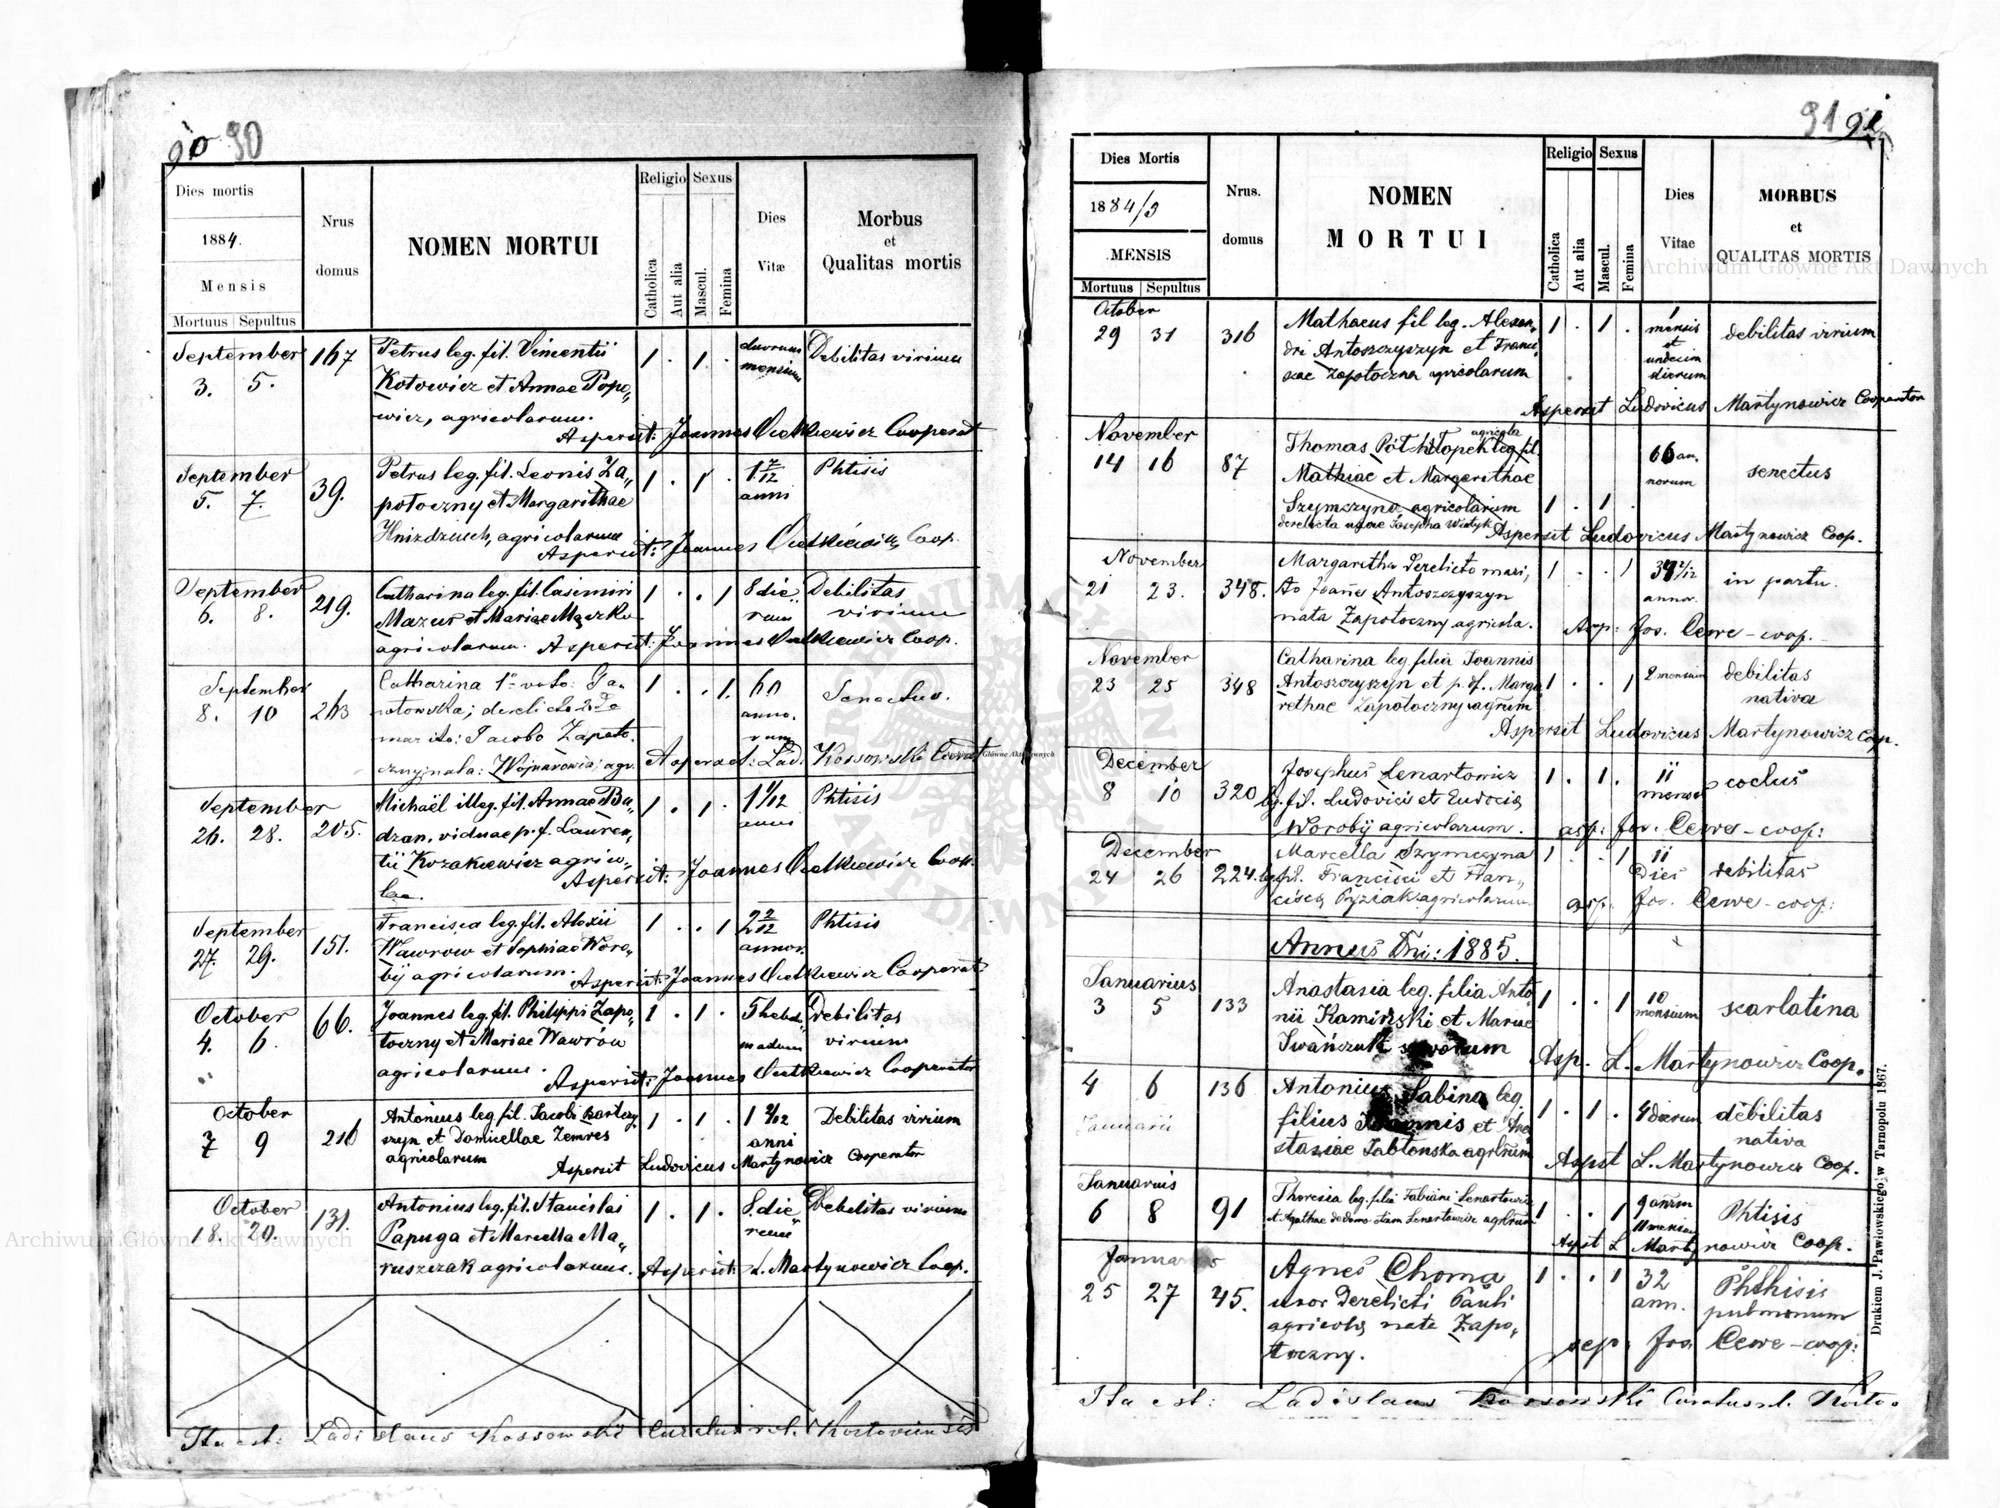 90 90
Dies mortis
1884.
Mensis
Mortuus Sepultus
Nrus
domus
NOMEN MORTUI
Religio
Catholica
Aut alia
Sexus
Mascul.
Femina
Dies
Vitæ
Morbus
et
Qualitas mortis
September 167 Petrus leg. fil. Vincentii 1 . 1 . duorum Debilitas virium
3. 5. Kotowicz et Annae Popo„ mensium
wicz, agricolarum.
Aspersit: Joannes Cooperat
September 39. Petrus leg. fil. Leonis Za„ 1 . 1 . 1 7/12 Phtisis
5. 7. potoczny et Margarithae anni
agricolarum
Aspersit: Joannes Coop.
September 219. Catharina leg. fil. Casimiri 1 . . 1 8 die„ Debilitas
6. 8. Mazur et Mariae Maczko rum virium
agricolarum. Aspersit: Joannes Coop.
September 263 Catharina 1o voto: Ga„ 1 . . 1. 60 Senectus.
8. 10 derelicta 2do anno„
marito: Jacobo Zapoto„ rum
agr. Aspersit: Lad. Kossowski
September 205. Michaël illeg. fil. Annae Bu„ 1 . 1 . 1 1/12 Phtisis
26. 28. dzan, viduae p. f. Lauren„ anni
tii Kozakiewicz agrico„
lae. Aspersit: Joannes Coop.
September 151. Francisca leg. fil. Alexii 1 . . 1 2 2/12 Phtisis
27. 29. Wawrow et Sophiae Woro„ annor.
bij agricolarum.
Aspersit: Joannes Cooperat
October 66. Joannes leg. fil. Philippi Zapo„ 1 . 1 . 5 hebdo„ Debilitas
4. 6. toczny et Mariae Wawrow madum virium
agricolarum.
Aspersit: Joannes Cooperator
October 216 Antonius leg. fil. Jacobi 1 . 1 . 1 2/12 Debilitas virium
7 9 szyn et Domicellae Zemres anni
agricolarum
Aspersit Ludovicus Martynowicz Cooperator
October 131. Antonius leg. fil. Stanislai 1 . 1 . 8. die„ Debilitas virium
18. 20. Papuga et Marcella Ma„ rum
ruszczak agricolarum. Aspersit: L. Martynowicz Coop.
Ita est: Ladislaus Kossowski Curatus r.l.
91 91
Dies Mortis
1884/5
MENSIS
Mortuus Sepultus
Nrus.
domus
NOMEN
MORTUI
Religio
Catholica
Aut alia
Sexus
Mascul.
Femina
Dies
Vitae
MORBUS
et
QUALITAS MORTIS
October Mathaeus fil leg. Alexan„ 1 . 1 . 1 debilitas virium
29 31 316 dri Antoszczyszyn et Franci„ mensis
scae Zapotoczna agricolarum et
undecim
dierum
Aspersit Ludovicus Martynowicz Cooperator
November agricola
14 16 87 Thomas leg fil. 66 an. senectus
Mathiae et Margerithae norum
Szymczyna agricolarum 1 . 1 .
derelicta uxore Josepha
Aspersit Ludovicus Martynowicz Coop.
November Margaretha derelicto mari„ 1 . . 1 2/12 in partu.
21 23. 348. to Joañe Antoszczyszyn annor.
nata Zapotoczny agricola. Asp: Jos. Cewe - coop.
November Catharina leg filia Joannis 1 . . 1 2 mensium debilitas
23 25 348 Antoszczyszyn et p. def. Marga„ nativa
rethae Zapotoczny agrum
Aspersit Ludovicus Martynowicz Coop.
December Josephus Lenartowicz 1 . 1 . 11
8 10 320 leg. fil. Ludovici et Eudocia mensium
Worobij agricolarum. asp: Jos. Cewe - coop:
December Marcella Szymczyna 1 . . 1 11 debilitas
24 26 224. leg. fil. Francisci et Fran„ Dies
cisca Pyziak agricolarum asp: Jos. Cewe - coop:
Annus Dni: 1885.
Januarius Anastasia leg. filia Anto„ 1 . . 1 10 scarlatina
3 5 133 nii Kamiński et Mariae mensium
Iwańczuk
Asp. L. Martynowicz Coop.
4 6 136 Antonius Sabina leg 1 . 1 . 4 dierum debilitas
Januarii filius Joannis et Ana„ nativa
stasiae Jabłonska agrlrum
Aspst L. Martynowicz Coop.
Januarius Theresia leg. filia Fabiani Lenartowicz 1 . . 1 9 annrm Phtisis
6 8 91 et Agathae de domo etiam Lenartowicz agrlrum 11 mensium
Aspst L Martynowicz Coop.
Januarius Agnes Choma 1 . . 1 32 Phthisis
25 27 45. uxor derelicti Pauli ann. pulmonum
agricola nata Zapo„
toczny. sep: Jos Cewe - coop:
Ita est: Ladislaus Kossowski Curatus r.l.
Drukiem J. Pawłowskiego w Tarnopolu 1867.
Archiwum Główne Akt Dawnych
Archiwum Główne Akt Dawnych
Archiwum Główne Akt Dawnych
ARCHIWUM GŁÓWNE AKT DAWNYCH